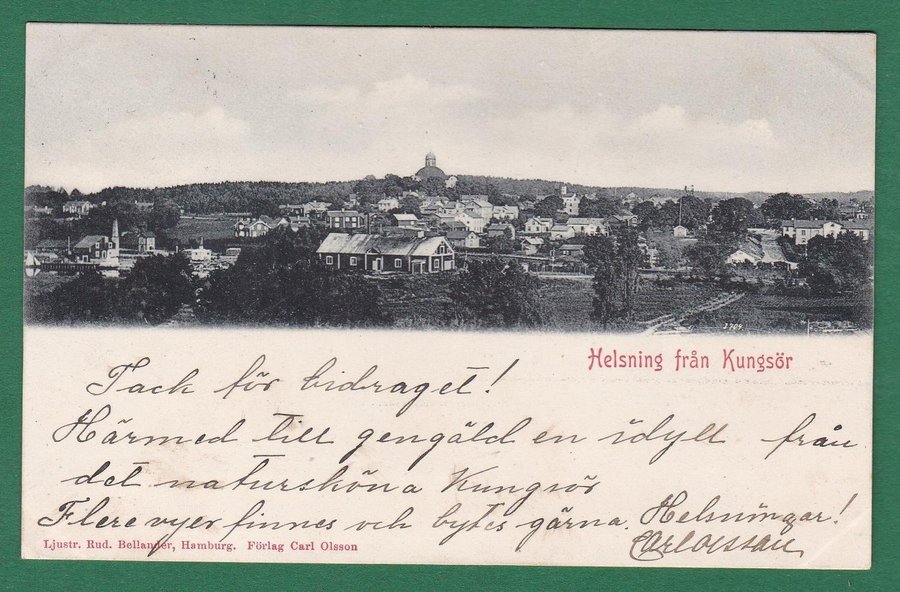 3704
Helsning från Kungsör
Tack för bidraget!
Härmed till gengäld en idyll från
det natursköna Kungsör
Flere vyer finnes och bytes gärna. Helsningar!
Carl Olsson
Ljustr. Rud. Bellander, Hamburg. Förlag Carl Olsson